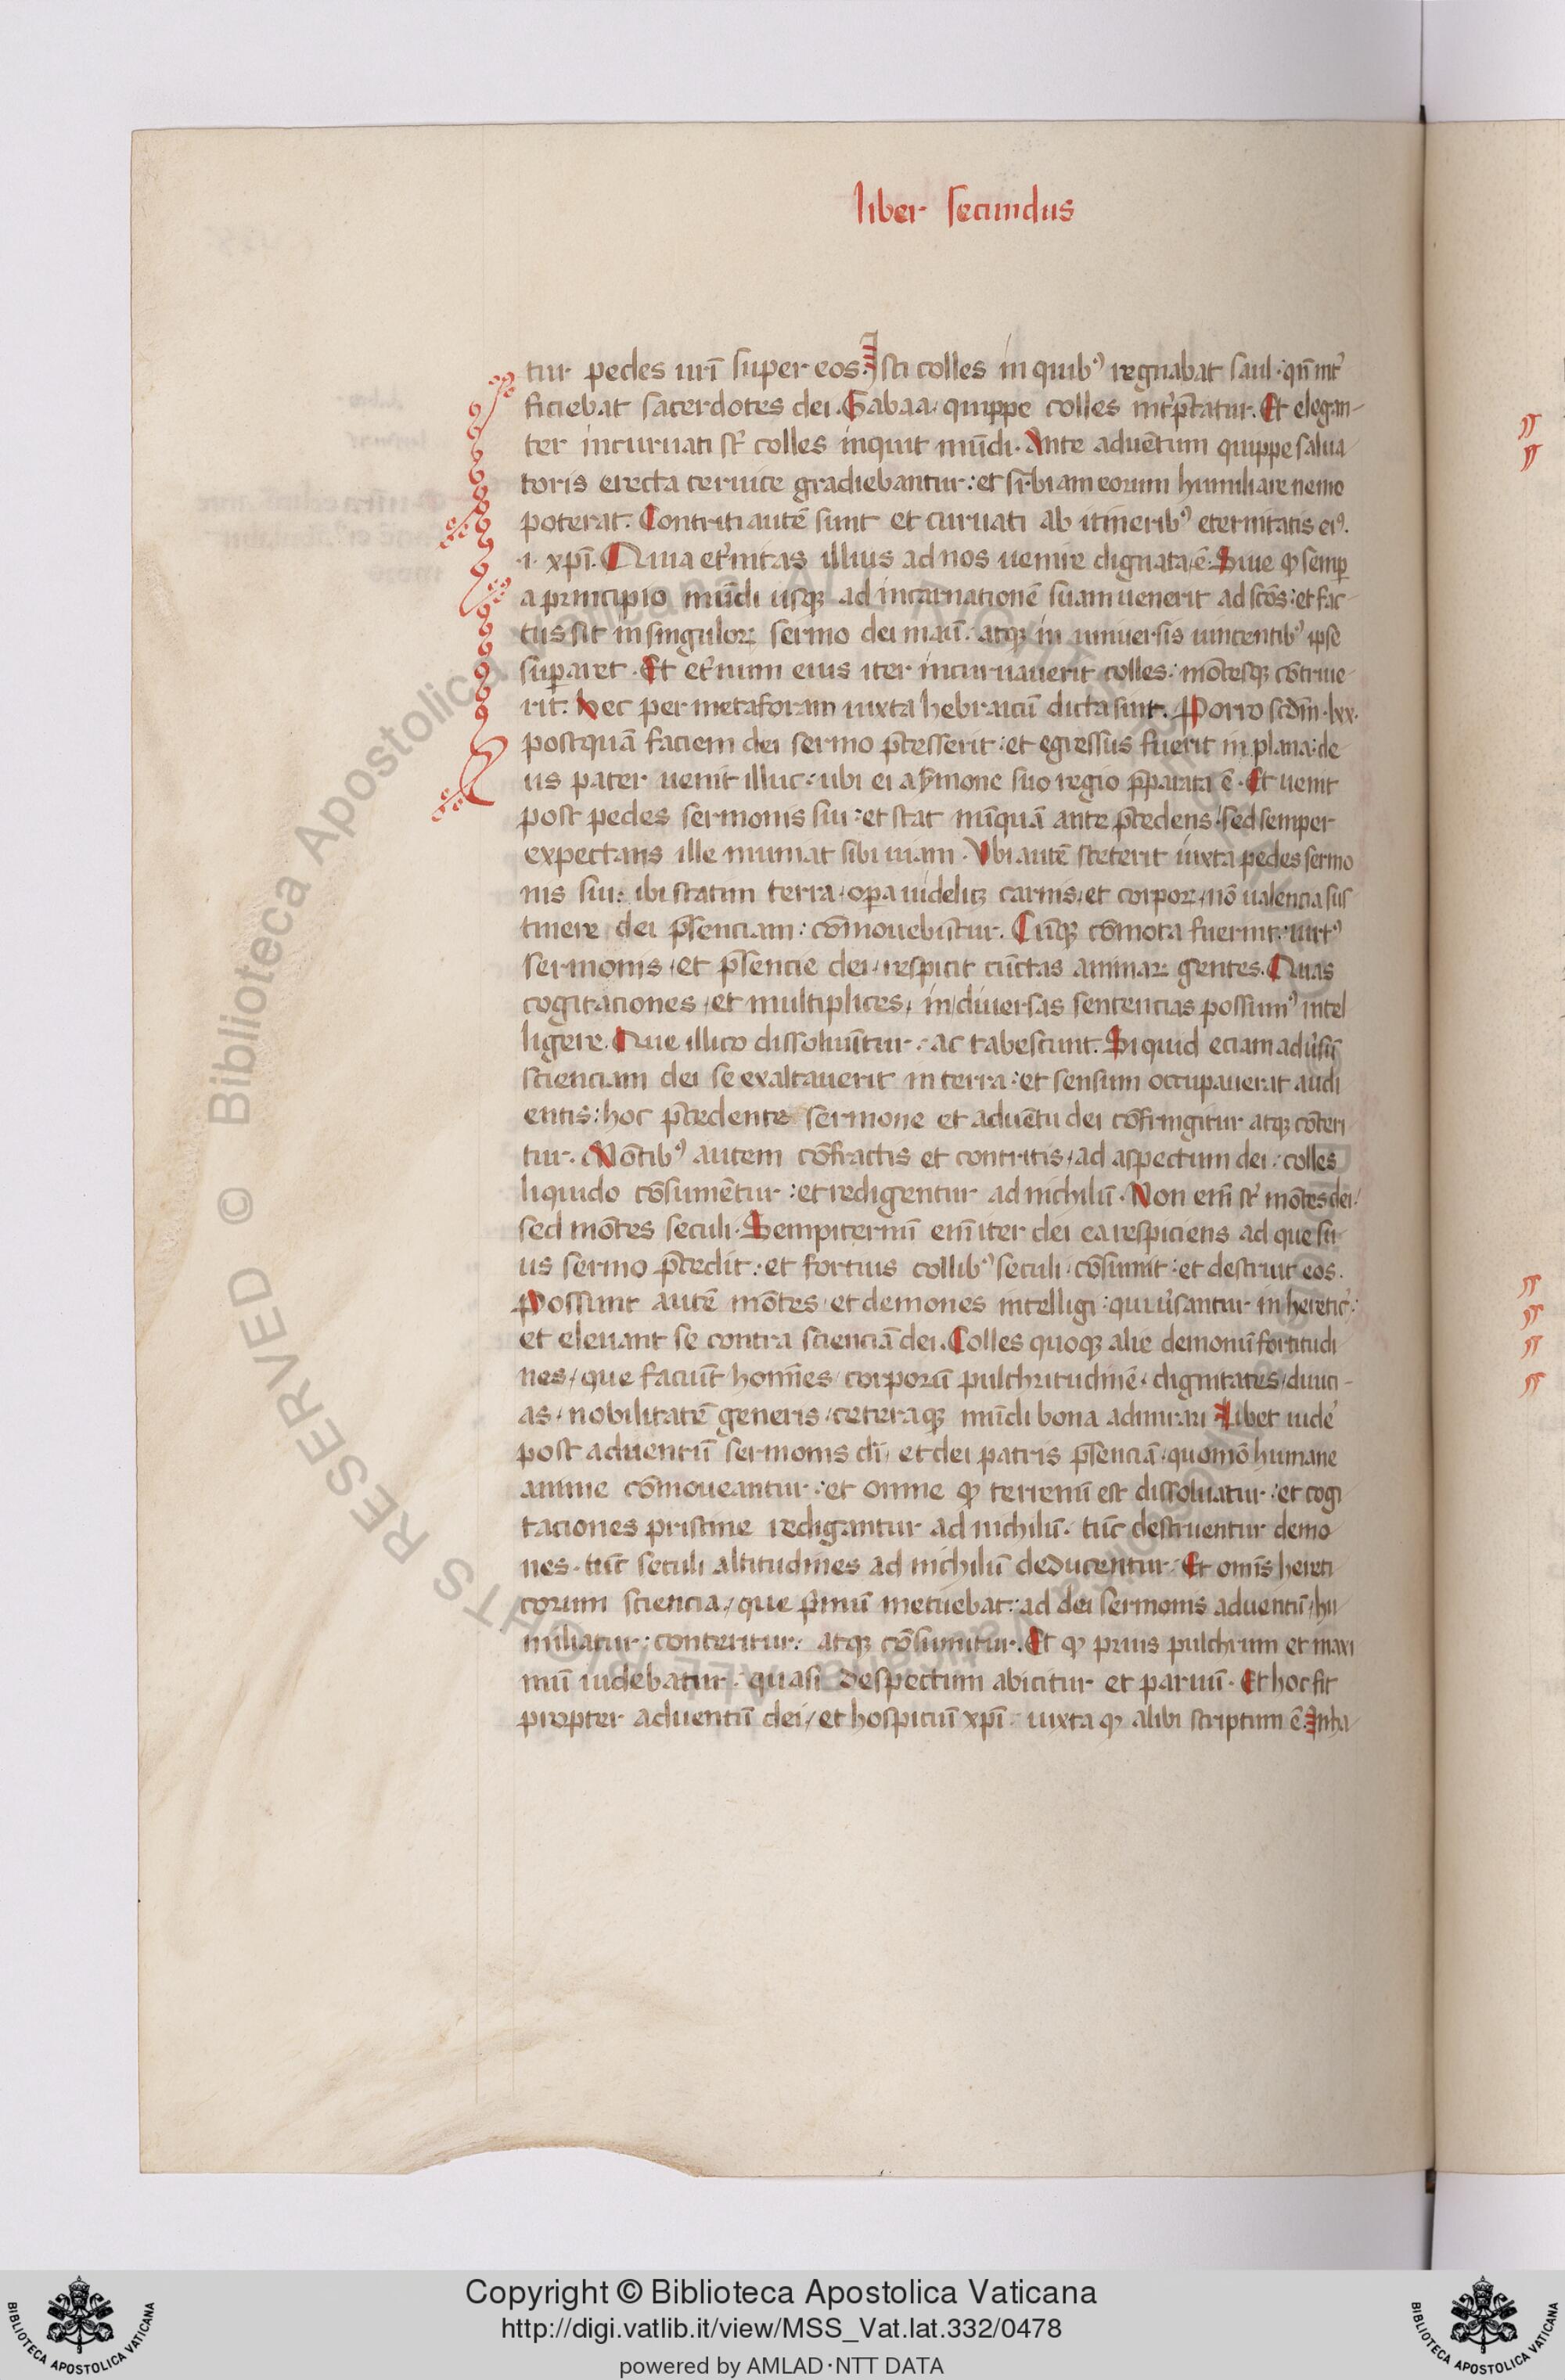 liber secundus
tur pedes ur̄i super eos. Isti colles in quibꝰ regnabat saul. qn̄ int͛
ficiebat sacerdotes dei. Gabaa. quippe colles int͛p̄tatur. Et elegan-
ter incuruati st͛ colles inquit mūdi. Ante aduētum quippe salua
toris erecta ceruice gradiebantur: et suꝑbiam eorum humiliare nemo
poterat. Contriti autē sunt et curuati ab itineribꝰ eternitatis eiꝰ.
.i. xp̄i. Quia et͛nitas illius ad nos uenire dignata ē. Siue ꝙ semꝑ
a principio mūdi usqꝫ ad incarnationē suam uenerit ad sc̄os: et fac
tus sit in singuloꝝ sermo dei manū. atqꝫ in uniuersis uincentibꝰ ip̄e
suꝑaret. Et et͛num eius iter incuruauerit colles: mōtesqꝫ cōtriue-
rit. Hec per metaforam iuxta hebraicū dicta sint. Porro scd̄m .lxx.
postquā faciem dei sermo p̄cesserit: et egressus fuerit in plana: de
us pater uenit illuc: ubi ei a s͛mone suo regio p̄parata ē. Et uenit
post pedes sermonis sui: et stat nūquā ante p̄cedens. sed semper
expectans ille muniat sibi uiam. Vbi autē steterit iuxta pedes sermo
nis sui: ibi statim terra, oꝑa uidelicꝫ carnis, et corpoꝝ, nō ualencia sus
tinere dei p̄senciam: cōmouebūtur. Cūqꝫ cōmota fuerint: uirtꝰ
sermonis, et p̄sencie dei, respicit cūctas animaꝝ gentes. Quas
cogitaciones, et multiplices, in diuersas sentencias possumꝰ intel
ligere. Que illico dissoluūtur: ac tabescunt. Si quid eciam adu͛sū
scienciam dei se exaltauerit in terra: et sensum occupauerat audi
entis: hoc p̄cedente sermone et aduētu dei cōfringitur atqꝫ cōteri
tur. Mōtibꝰ autem cōfractis et contritis, ad aspectum dei: colles
liquido cōsumētur: et redigentur ad nichilū. Non em̄ st͛ mōtes dei:
sed mōtes seculi. Sempiternū em̄ iter dei ea respiciens ad que su
us sermo p̄cedit: et fortius collibꝰ seculi, cōsumit: et destruit eos.
Possunt autē mōtes, et demones intelligi: qui u͛santur in heretic͛:
et eleuant se contra sciencīa dei. Colles quoqꝫ alie demonū fortitudi
nes, que faciūt homīes, corporū pulchritudinē, dignitates, diuici-
as, nobilitatē generis, ceteraqꝫ mūdi bona admirari. Libet uide͛
post aduentū sermonis dī, et dei patris p̄sencīa, quomō humane
anime cōmoueantur: et omne ꝙ terrenū est dissoluatur: et cogi
taciones pristine redigantur ad nichilū. tūc destruentur demo
nes. tūc seculi altitudines ad nichilū deducentur. Et omīs hereti
corum sciencia, que p͛mū metuebat: ad dei sermonis aduentū, hu
miliatur: conteritur: atqꝫ cōsumitur. Et ꝙ prius pulchrum et maxi
mū uidebatur: quasi despectum abicitur et paruū. Et hoc fit
propter aduentū dei, et hospiciū xp̄i. iuxta ꝙ alibi scriptum ē. Inha-
Copyright © Biblioteca Apostolica Vaticana
http://digi.vatlib.it/view/MSS_Vat.lat.332/0478
powered by AMLAD·NTT DATA